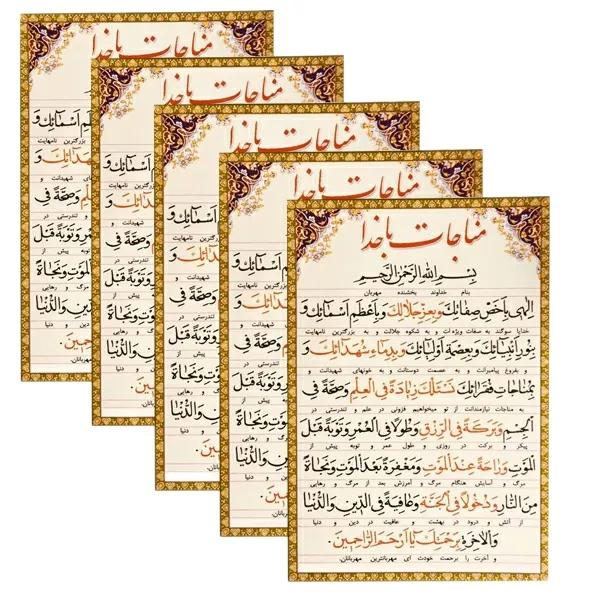 مناجات باخدا
بِسْمِ اللهِ الرَّحْمٰنِ الرَّحیمِ
بنام خداوند بخشنده مهربان
اِلٰهی بِاَخَصِّ صِفاتِکَ وَبِعِزِّ جَلالِکَ وَبِاَعْظَمِ اَسْمائِکَ وَ
خدایا سوگند به صفات ویژه ات و به شکوه جلالت و به بزرگترین نامهایت
بِنُورِ اَنْبِیائِکَ وَبِعِصْمَةِ اَوْلِیائِکَ وَبِدِماءِ شُهَدائِکَ وَ
و بفروغ پیامبرانت و به عصمت دوستانت و به خونهای شهیدانت و
بِمُناجاتِ فُقَرائِکَ نَسْئَلُکَ زِیادَةً فِی الْعِلْمِ وَصِحَّةً فِی
به مناجات نیازمندانت از تو میخواهیم فزونی در علم و تندرستی در
الْجِسْمِ وَبَرَکَةً فِی الرِّزْقِ وَطُولاً فِی الْعُمْرِ وَتَوْبَةً قَبْلَ
پیکر و برکت در روزی و طول عمر و توبه پیش از
الْمَوْتِ وَراحَةً عِنْدَ الْمَوْتِ وَمَغْفِرَةً بَعْدَ الْمَوْتِ وَنَجاةً
مرگ و آسایش هنگام مرگ و آمرزش بعد از مرگ و رهایی
مِنَ النّارِ وَدُخُولاً فِی الْجَنَّةِ وَعافِیَةً فِی الدّینِ وَالدُّنْیا
از آتش و ورود در بهشت و عافیت در دین و دنیا
وَالاخِرَةِ بِرَحْمَتِکَ یا اَرْحَمَ الرّاحِمینَ.
و آخرت را برحمت خودت ای مهربانترین مهربانان.
مناجات باخدا
مناجات باخدا
مناجات باخدا
مناجات باخدا